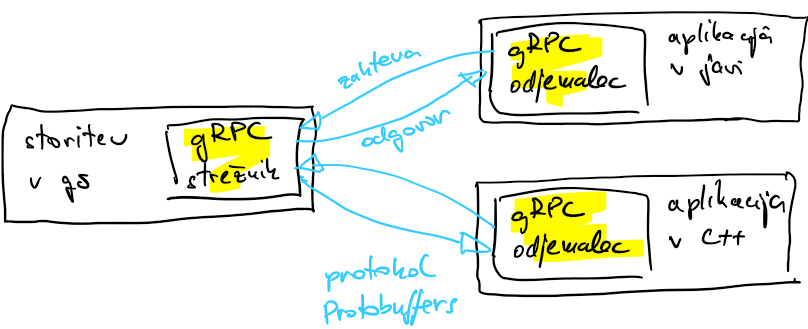 storitev
v go
gRPC
strežnik
zahteva
odgovor
gRPC
odjemalec
aplikacija
v javi
gRPC
odjemalec
aplikacija
v C++
protokol
Protobuffers